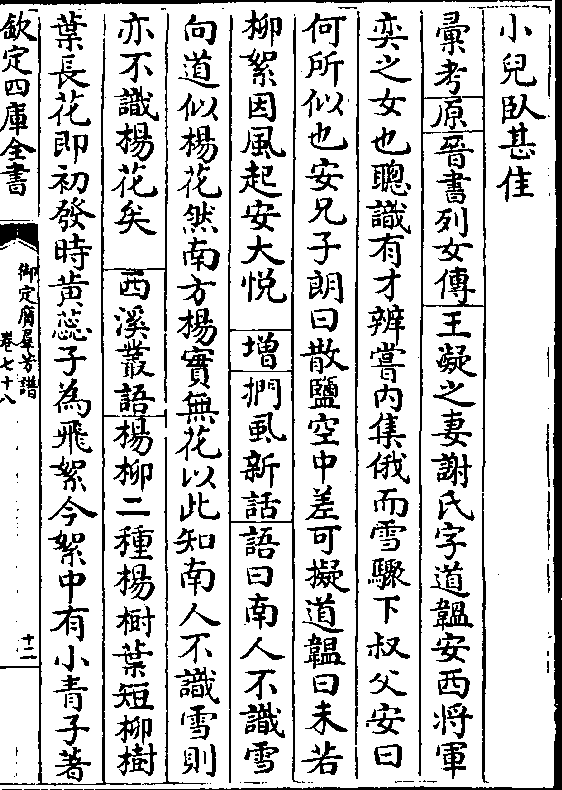 小兒臥甚佳
彚考原晉書列女傳王凝之妻謝氏字道韞安西將軍
奕之女也聰識有才辨嘗內集俄而雪驟下叔父安曰
何所似也安兄子朗曰散鹽空中差可擬道韞曰未若
柳絮因風起安大悅增捫虱新話語曰南人不識雪
向道似楊花然南方楊實無花以此知南人不識雪則
亦不識楊花矣西溪叢語楊柳二種楊樹葉短柳樹
葉長花即初發時黄蕊子為飛絮今絮中有小青子著
欽定四庫全書
御定廣羣芳譜
卷七十八
十二